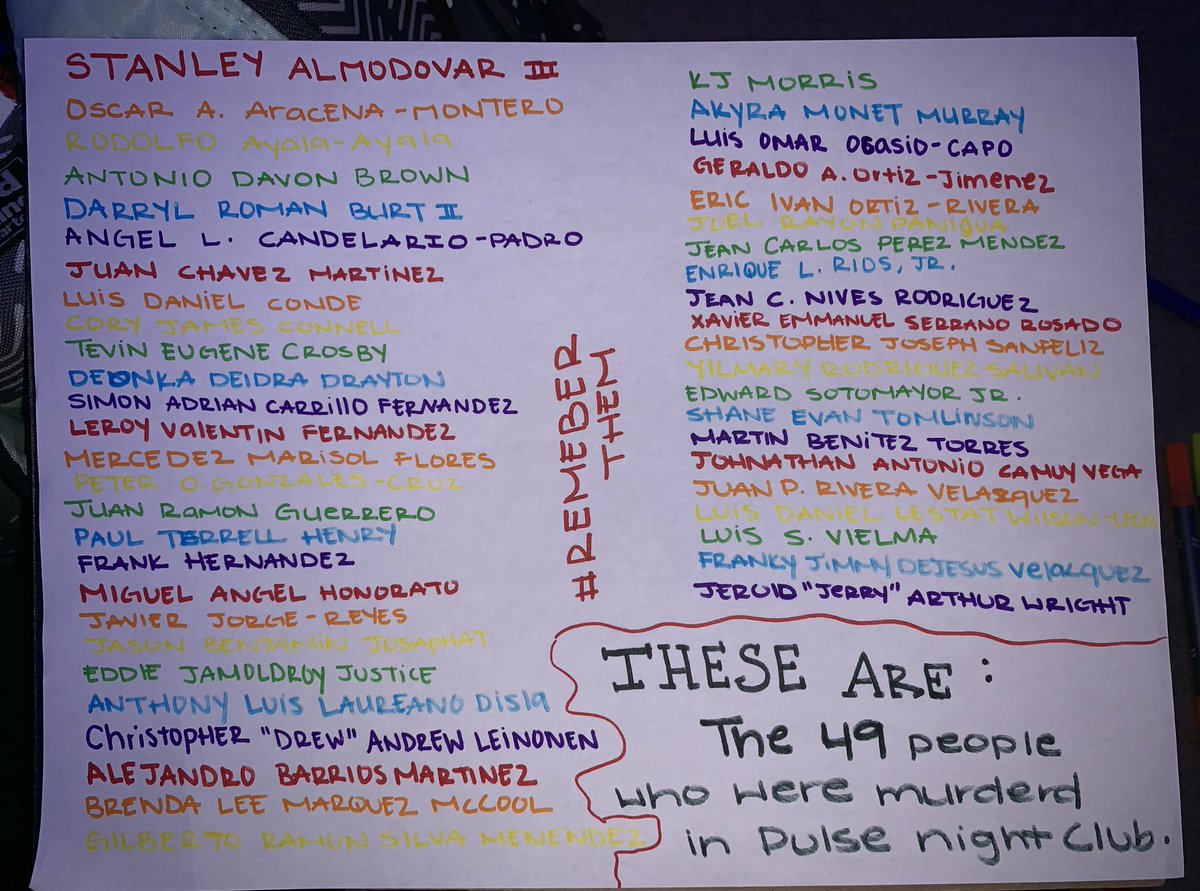 STANLEY ALMODOVAR III
OSCAR A. AraCENA-MONTERO
RODOLFO Ayala-Ayala
ANTONIO DAVON BROWN
DARRYL ROMAN BURT II
ANGEL L. CANDELARIO-PADRO
JUAN CHAVEZ MARTINEZ
LUIS DANIEL CONDE
CORY JAMES CONNELL
TEVIN EUGENE CROSBY
DEONKA DEIDRA DRAYTON
SIMON ADRIAN CARRILLO FERNANDEZ
LEROY VALENTIN FERNANDEZ
MERCEDEZ MARISOL FLORES
PETER O. GONZALES-CRUZ
JUAN RAMON GUERRERO
PAUL TERRELL HENRY
FRANK HERNANDEZ
MIGUEL ANGEL HONORATO
JAVIER JORGE-REYES
JASON BENJAMIN JOSAPHAT
EDDIE JAMOLDROY JUSTICE
ANTHONY LUIS LAUREANO Disla
ChristopHER "DREW" ANDREW LEINONEN
ALEJANDRO BARRIOS MARTINEZ
BRENDA LEE MARQUEZ McCOOL
GILBERTO RAMON SILVA MENENDEZ
#REMEBER
THEM
KJ MORRIS
AKYRA MONET MURRAY
LUIS OMAR OCASIO-CAPO
GERALDO A. Ortiz-Jimenez
ERIC IVAN ORTIZ-RIVERA
JOEL RAYON PANIQUA
JEAN CARLOS PEREZ MENDEZ
ENRIQUE L. RIOS, JR.
JEAN C. NIVES RODRIGUEZ
XAVIER EMMANUEL SERRANO ROSADO
CHRISTOPHER JOSEPH SANFELIZ
YILMARY RODRIGUEZ SALIVAN
EDWARD SOTOMAYOR JR.
SHANE EVAN TOMLINSON
MARTIN BENITEZ TORRES
JOHNATHAN ANTONIO CAMUY VEGA
JUAN P. RIVERA VELAZQUEZ
LUIS DANIEL LESTAT WILSON-LEON
LUIS S. VIELMA
FRANKY JIMMY DEJESUS VELAZQUEZ
JEROID "JERRY" ARTHUR WRIGHT
THESE ARE:
The 49 people
who were murderd
in Pulse night Club.